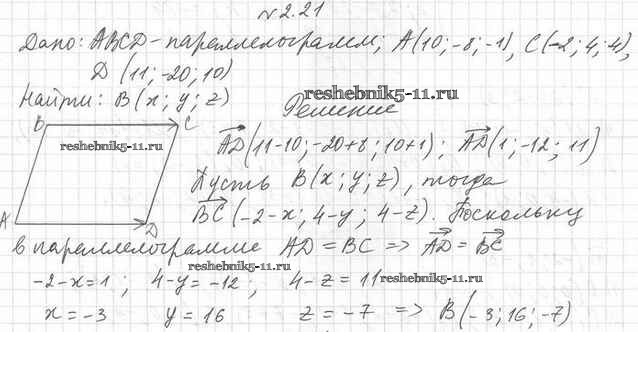 №2.21
Дано: ABCD - параллелограмм; A(10; -8; -1), C(-2; 4; 4),
D(11; -20; 10)
reshebnik5-11.ru
Найти: B(x; y; z)
Решение
B C
reshebnik5-11.ru
AD(11-10; -20+8; 10+1); AD(1; -12; 11)
Пусть B(x; y; z), тогда
BC(-2-x; 4-y; 4-z). Поскольку
A D
в параллелограмме AD = BC => AD = BC
reshebnik5-11.ru
-2-x=1; 4-y=-12; 4-z=11
reshebnik5-11.ru
x=-3 y=16 z=-7 => B(-3; 16; -7)